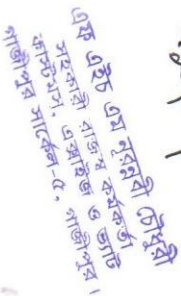 এফ এইচ এম নূরুন্নবী চৌধুরী
সহকারী রাজস্ব কর্মকর্তা
কাস্টমস, এক্সাইজ ও ভ্যাট
গাজীপুর সার্কেল-৫, গাজীপুর।